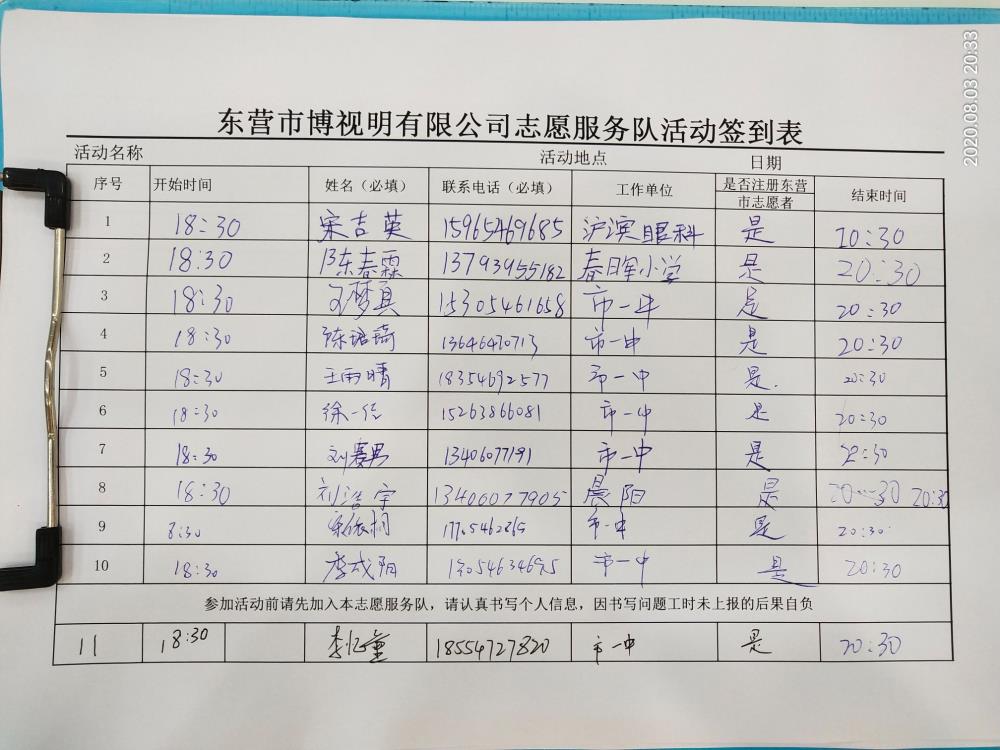 2020.08.03 20:33
东营市博视明有限公司志愿服务队活动签到表
活动名称 活动地点 日期
序号 开始时间 姓名（必填） 联系电话（必填） 工作单位 是否注册东营市志愿者 结束时间
1 18:30 宋吉英 15965469685 沪滨眼科 是 10:30
2 18:30 陈春霖 13793955182 春晖小学 是 20:30
3 18:30 刘梦真 15305461658 市一中 是 20:30
4 18:30 陈珺琦 13646470713 市一中 是 20:30
5 18:30 王雨晴 18354692577 市一中 是. 20:30
6 18:30 徐一 15263866081 市一中 是 20:30
7 18:30 刘赛男 13406077191 市一中 是
8 18:30 刘浩宇 13406077905 晨阳 是 20:30 20:30
9 8:30 宋依桐 市一中 是 20:30
10 18:30 李成阳 市一中 是 20:30
参加活动前请先加入本志愿服务队，请认真书写个人信息，因书写问题工时未上报的后果自负
11 18:30 李忆童 18554727820 市一中 是 20:30